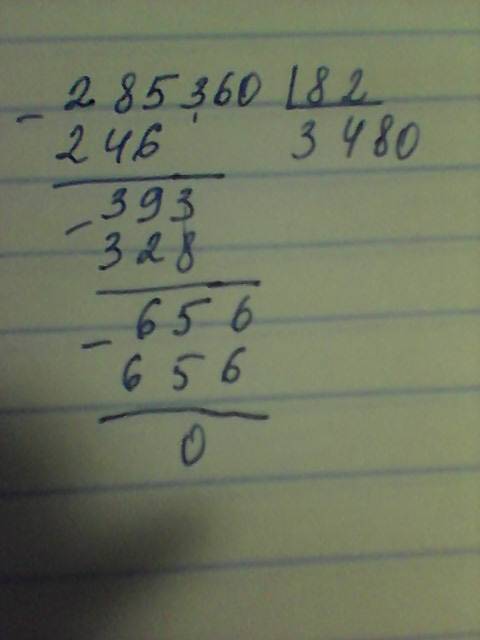 - 285360 | 82
246 3480
- 393
328
- 656
656
0